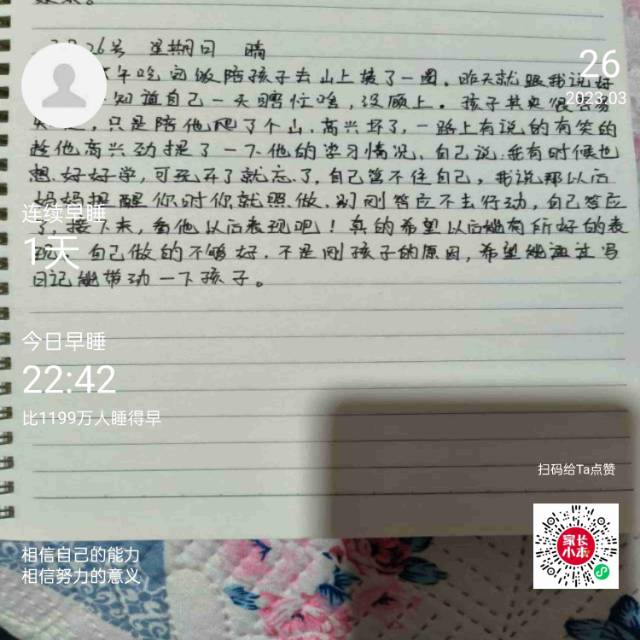 26号 星期日 晴
26
2023.03
午吃完饭陪孩子去山上接了一圈,昨天就跟我说
知道自己一天瞎忙啥,没顾上。孩子其实很
只是陪他爬了个山,高兴坏了,一路上有说的有笑的
趁他高兴劲提了一下他的学习情况,自己说:我有时候也
想好好学,可玩开了就忘了,自己管不住自己,我说那以后
妈妈提醒你时你就照做,别刚答应不去行动,自己答应
了,接下来,看他以后表现吧!真的希望以后能有所好的表
现,自己做的不够好,不是刚孩子的原因,希望能通过写
日记能带动一下孩子。
连续早睡
1天
今日早睡
22:42
比1199万人睡得早
扫码给Ta点赞
家长
小本
相信自己的能力
相信努力的意义